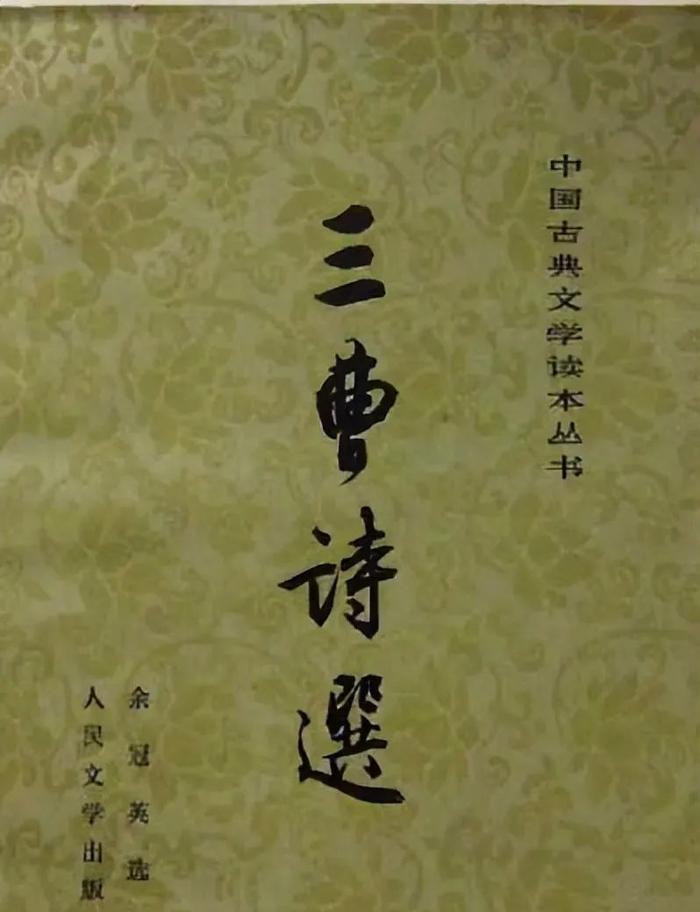 中国古典文学读本丛书
三曹诗選
余冠英选
人民文学出版